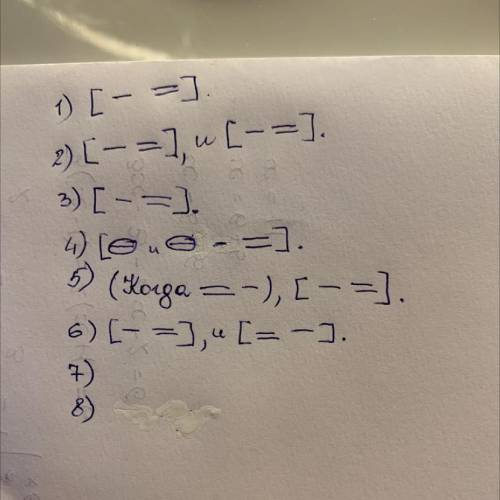 1) [ – = ].
2) [ – = ], и [ – = ].
3) [ – = ].
4) [⊖ и ⊖ – = ].
5) (Когда = –), [ – = ].
6) [ – = ], и [ = – ].
7)
8)